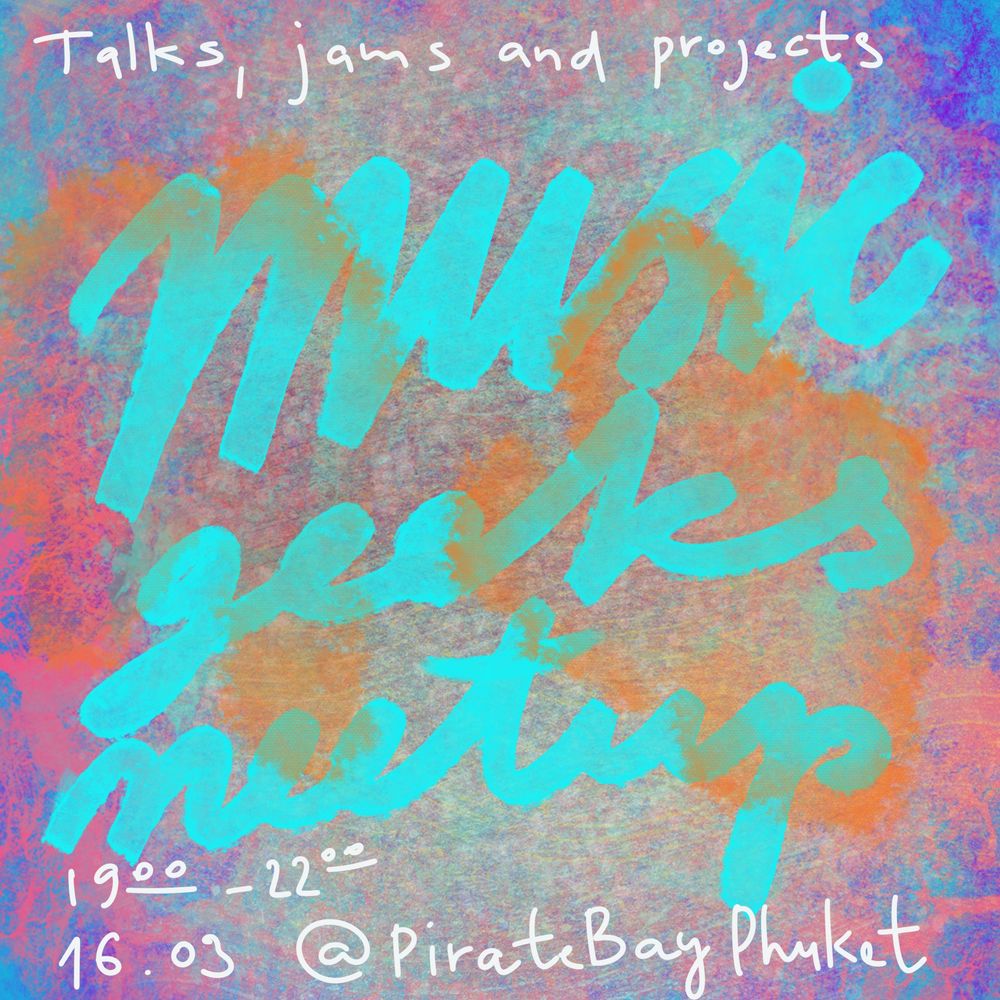 Talks, jams and projects
Music
geeks
meetup
19⁰⁰ - 22⁰⁰
16.03 @PirateBayPhuket